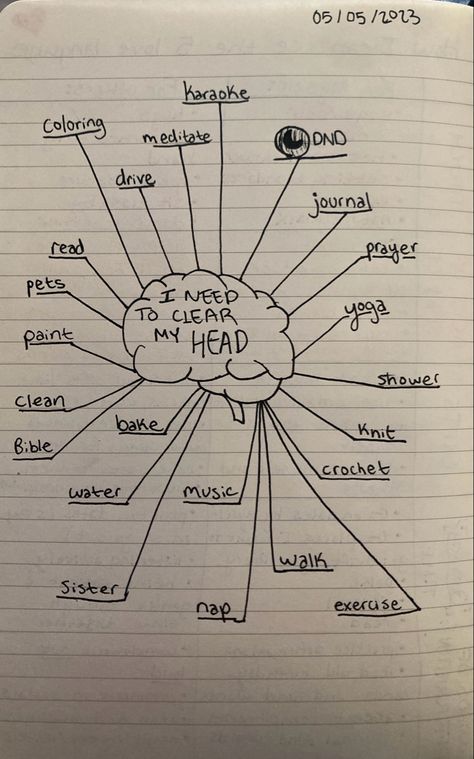 05/05/2023
karaoke
coloring
meditate
DND
drive
journal
read
prayer
pets
I NEED
TO CLEAR
MY HEAD
yoga
paint
shower
clean
bake
knit
Bible
crochet
water
music
walk
sister
nap
exercise